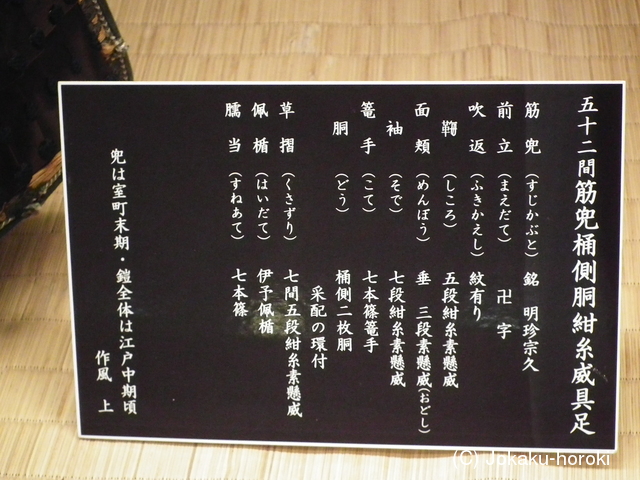 五十二間筋兜桶側胴紺糸威具足
筋兜（すじかぶと）銘 明珍宗久
前立（まえだて）卍字
吹返（ふきかえし）紋有り
鞠（しころ）五段紺糸素懸威
面頬（めんぼう）垂 三段素懸威（おどし）
袖（そで）七段紺糸素懸威
篭手（こて）七本篠篭手
胴（どう）桶側二枚胴
采配の環付
草摺（くさずり）七間五段紺糸素懸威
佩楯（はいだて）伊予佩楯
臑当（すねあて）七本篠
兜は室町末期・鎧全体は江戸中期頃
作風 上
(C) Jokaku-horoki